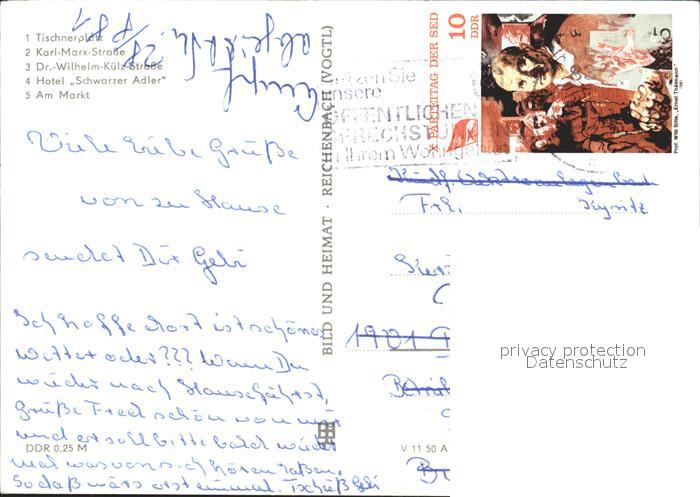 1 Tischnerplatz
2 Karl-Marx-Straße
3 Dr.-Wilhelm-Külz-Straße
4 Hotel „Schwarzer Adler"
5 Am Markt
Viele liebe Grüße
von zu Hause
sendet Dir Gebi
Ich hoffe dort ist schönes
Wetter oder??? Wenn Du
wieder nach Hause fährst,
grüße Fred schön von mir
und er soll bitte bald wieder
mal was von sich hören laßen.
So daß wärs erst einmal. Tschüß Gebi
DDR 0,25 M
BILD UND HEIMAT · REICHENBACH (VOGTL)
V 11 50 A
X. PARTEITAG DER SED
10
DDR
Prof. Willi Sitte, „Ernst Thälmann"
1981
Nutzen Sie
unsere
ÖFFENTLICHEN
SPRECHSTUNDEN
in Ihrem Wohngebiet
Frl.
Kyritz
1901
privacy protection
Datenschutz